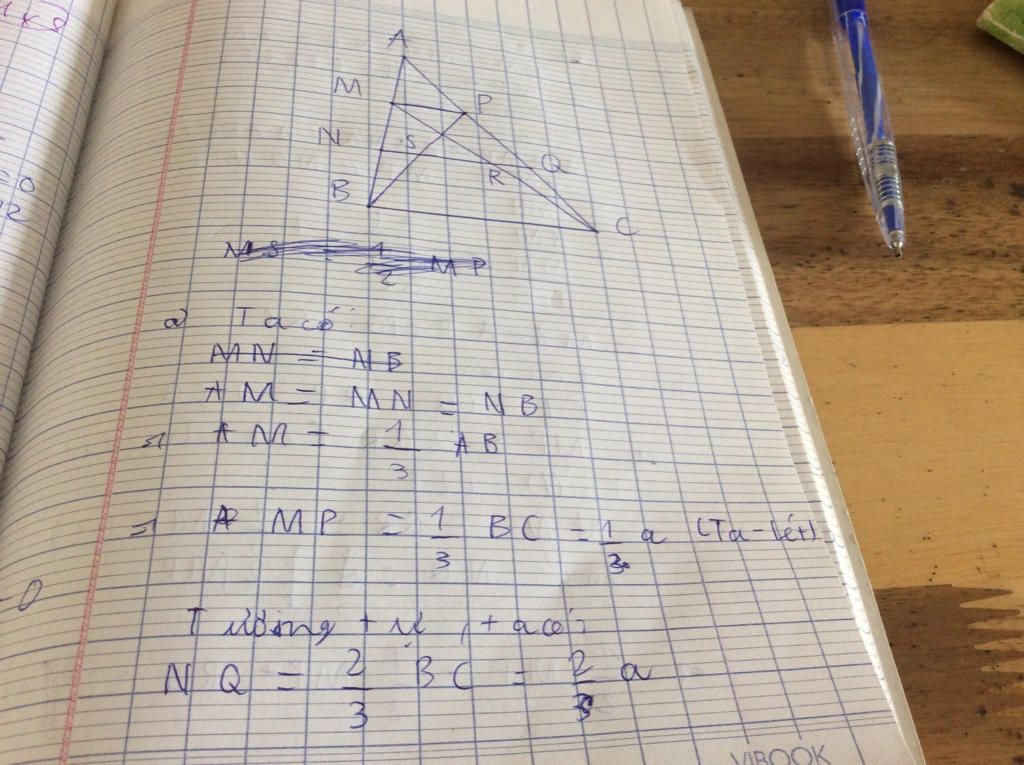 A
M P
N S Q
R
B C
a) Ta có:
MN = NB
AM = MN = NB
=> AM = 1/3 AB
=> MP = 1/3 BC = 1/3 a (Ta-lét)
Tương tự, ta có:
NQ = 2/3 BC = 2/3 a
VIBOOK